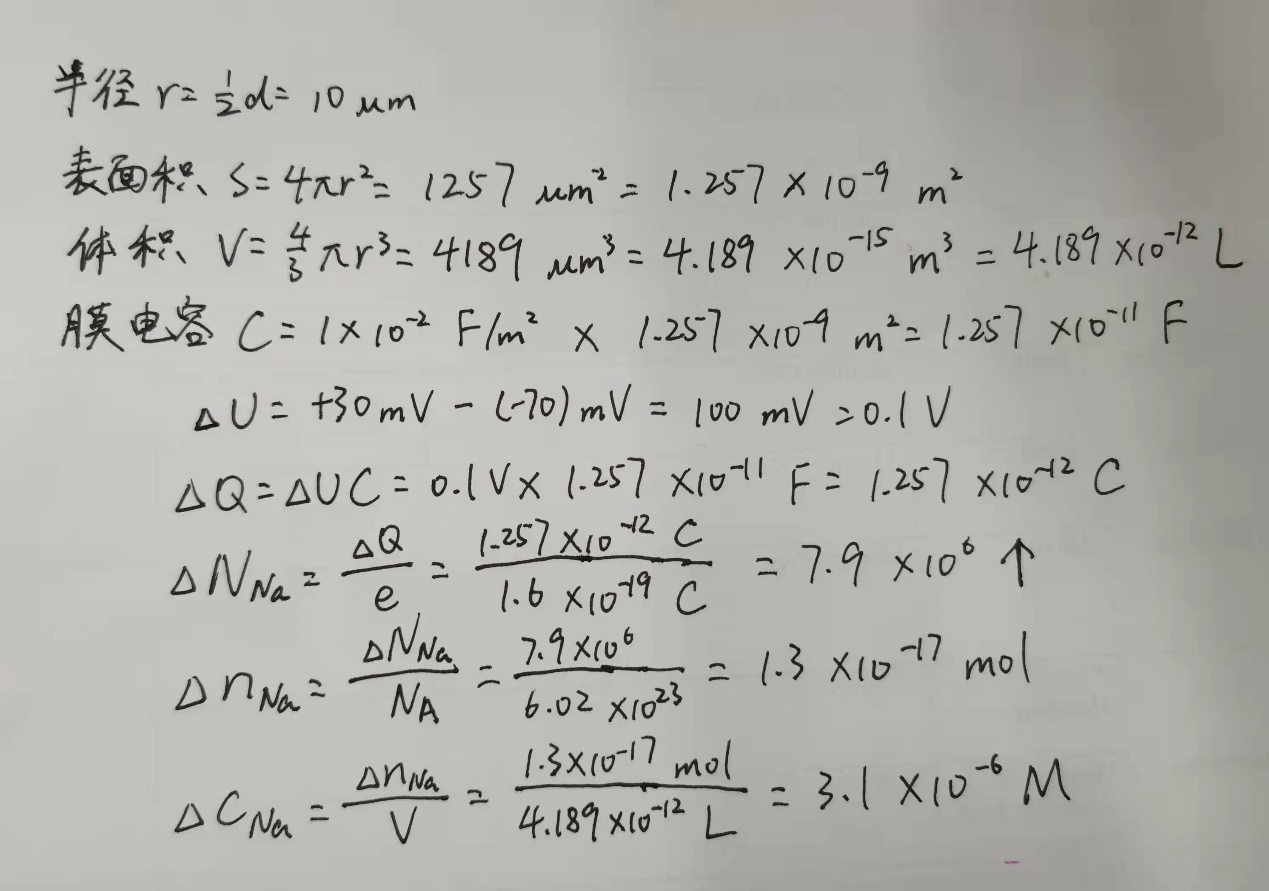 半径 r = 1/2 d = 10 μm
表面积 S = 4πr² = 1257 μm² = 1.257 × 10⁻⁹ m²
体积 V = 4/3 πr³ = 4189 μm³ = 4.189 × 10⁻¹⁵ m³ = 4.189 × 10⁻¹² L
膜电容 C = 1 × 10⁻² F/m² × 1.257 × 10⁻⁹ m² = 1.257 × 10⁻¹¹ F
ΔU = +30 mV - (-70) mV = 100 mV = 0.1 V
ΔQ = ΔUC = 0.1 V × 1.257 × 10⁻¹¹ F = 1.257 × 10⁻¹² C
ΔN_Na = ΔQ / e = 1.257 × 10⁻¹² C / 1.6 × 10⁻¹⁹ C = 7.9 × 10⁶ 个
Δn_Na = ΔN_Na / N_A = 7.9 × 10⁶ / 6.02 × 10²³ = 1.3 × 10⁻¹⁷ mol
ΔC_Na = Δn_Na / V = 1.3 × 10⁻¹⁷ mol / 4.189 × 10⁻¹² L = 3.1 × 10⁻⁶ M